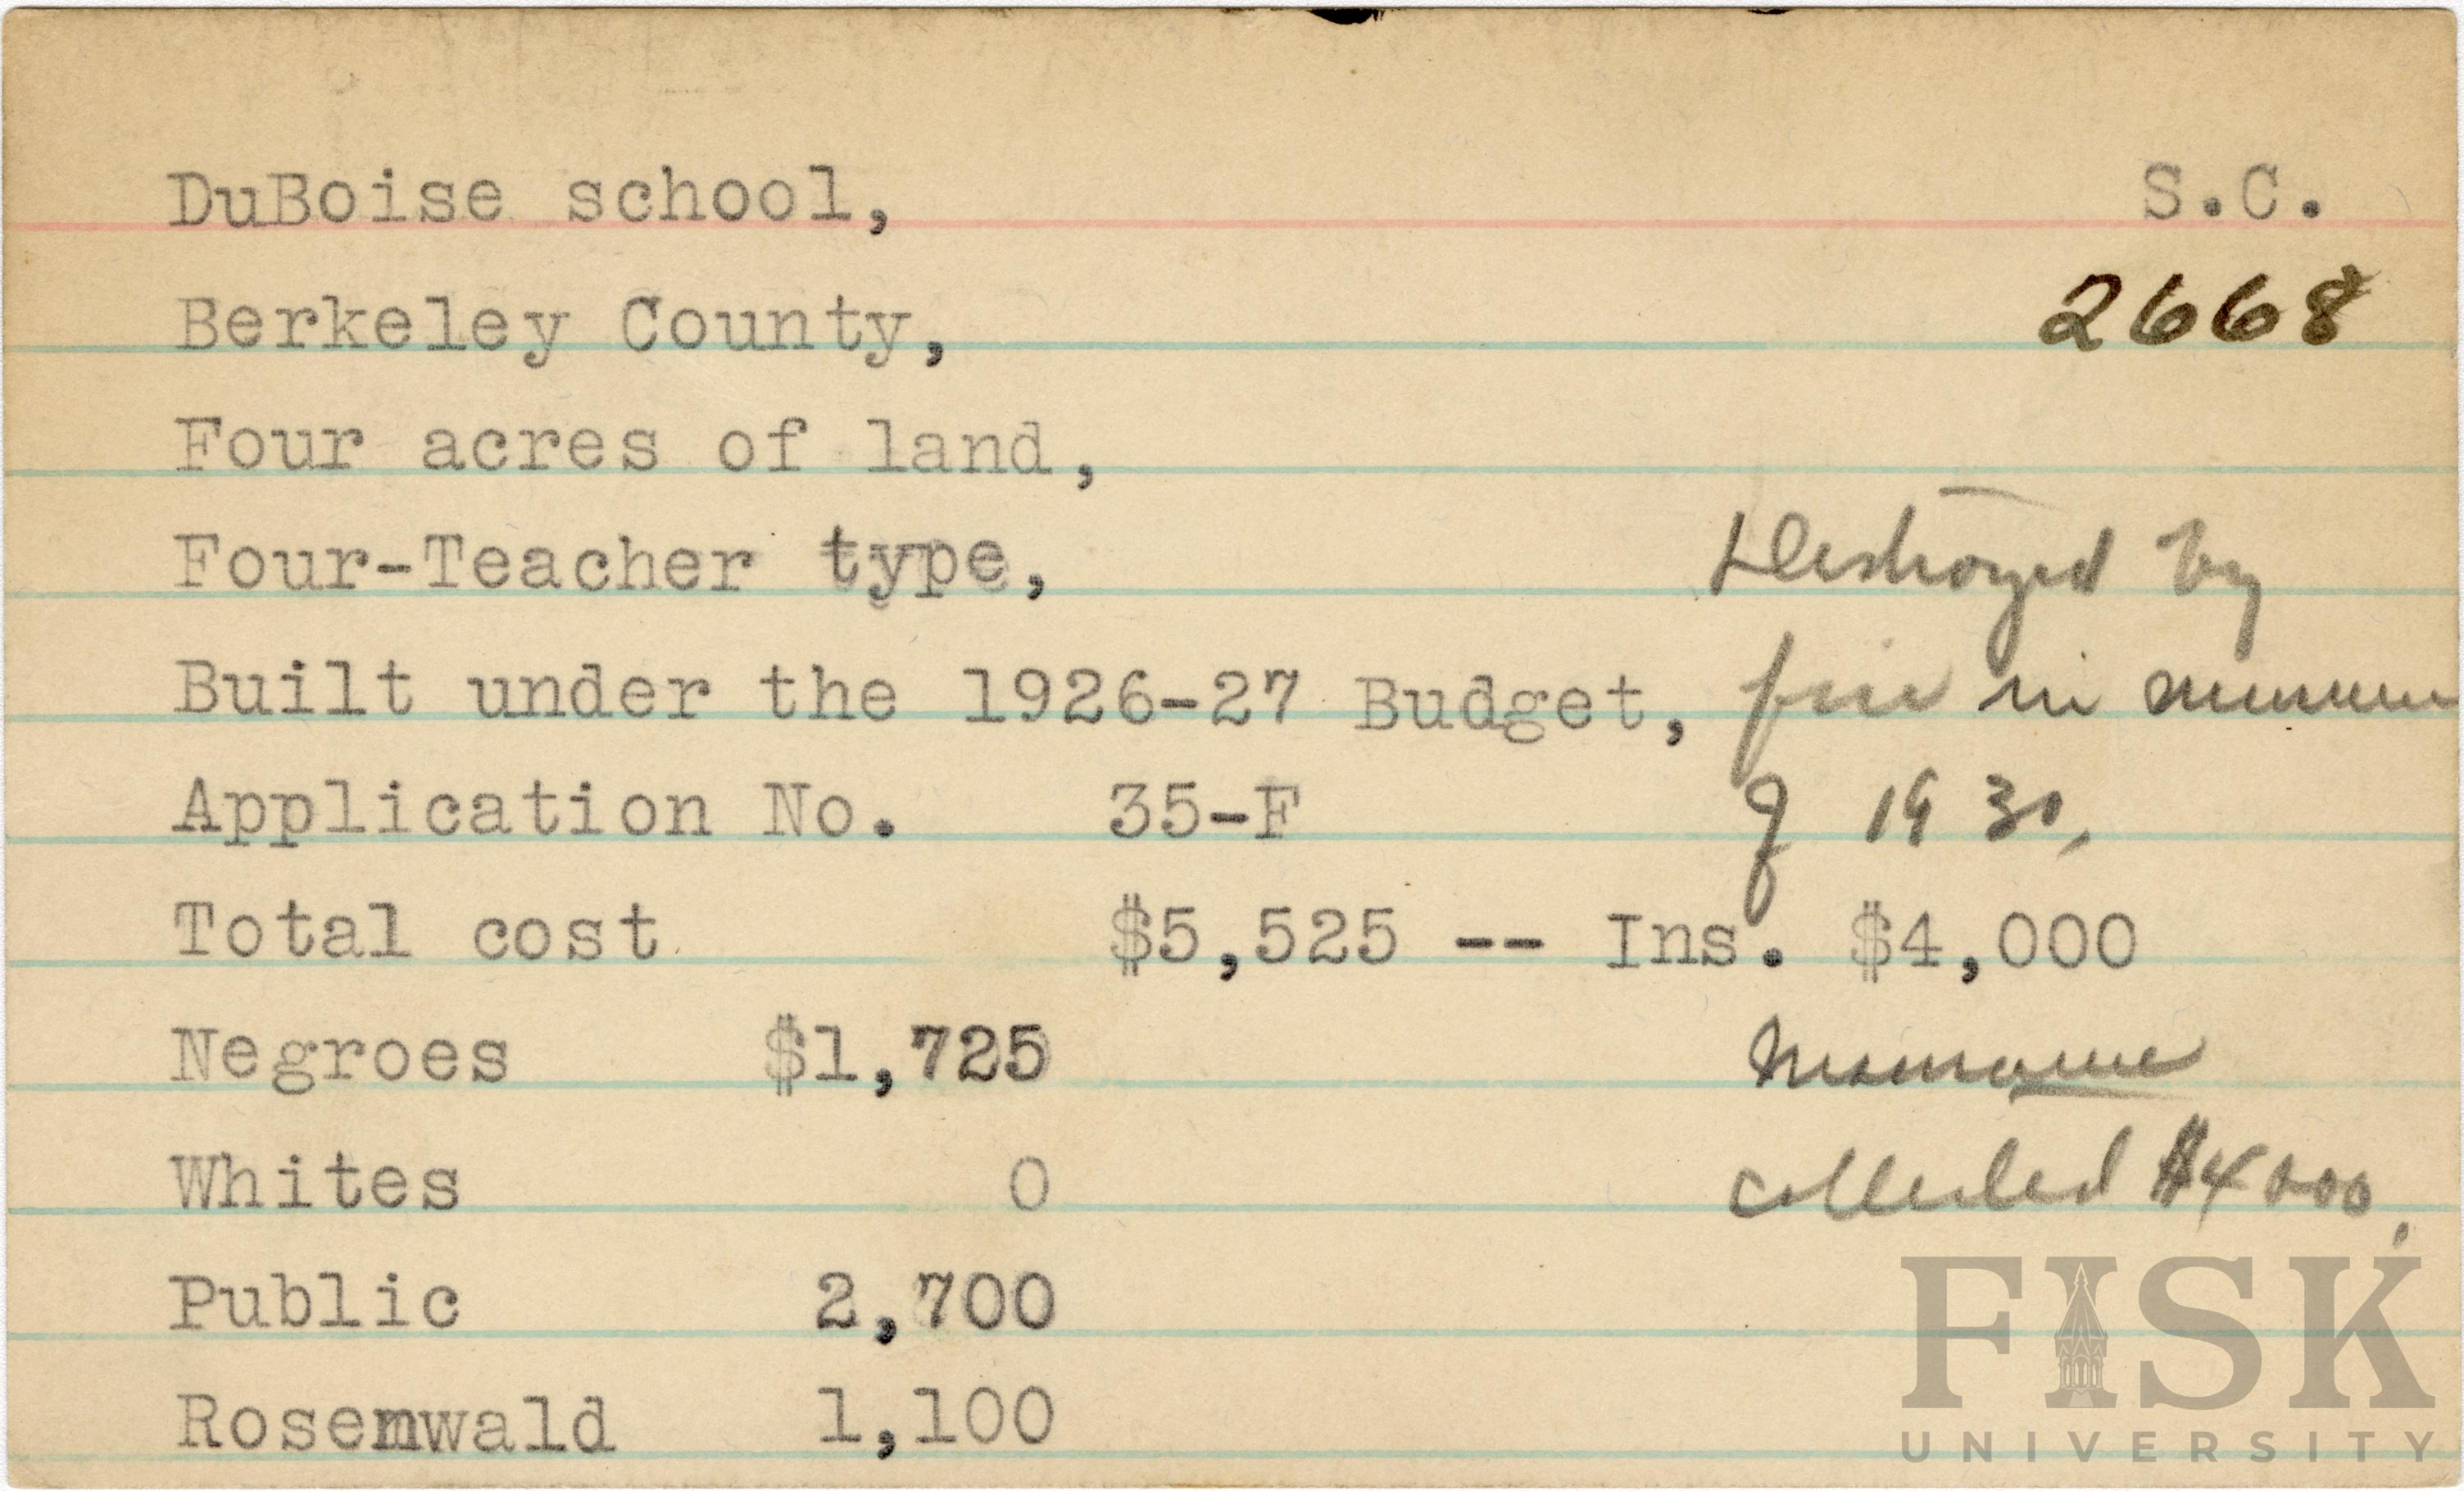 DuBoise school, S.C.
Berkeley County, 2668
Four acres of land,
Four-Teacher type, Destroyed by
Built under the 1926-27 Budget, fire in summer
Application No. 35-F of 1930,
Total cost $5,525 -- Ins. $4,000
Negroes $1,725 Insurance
Whites 0 collected $4000.
Public 2,700
Rosenwald 1,100
FISK
UNIVERSITY